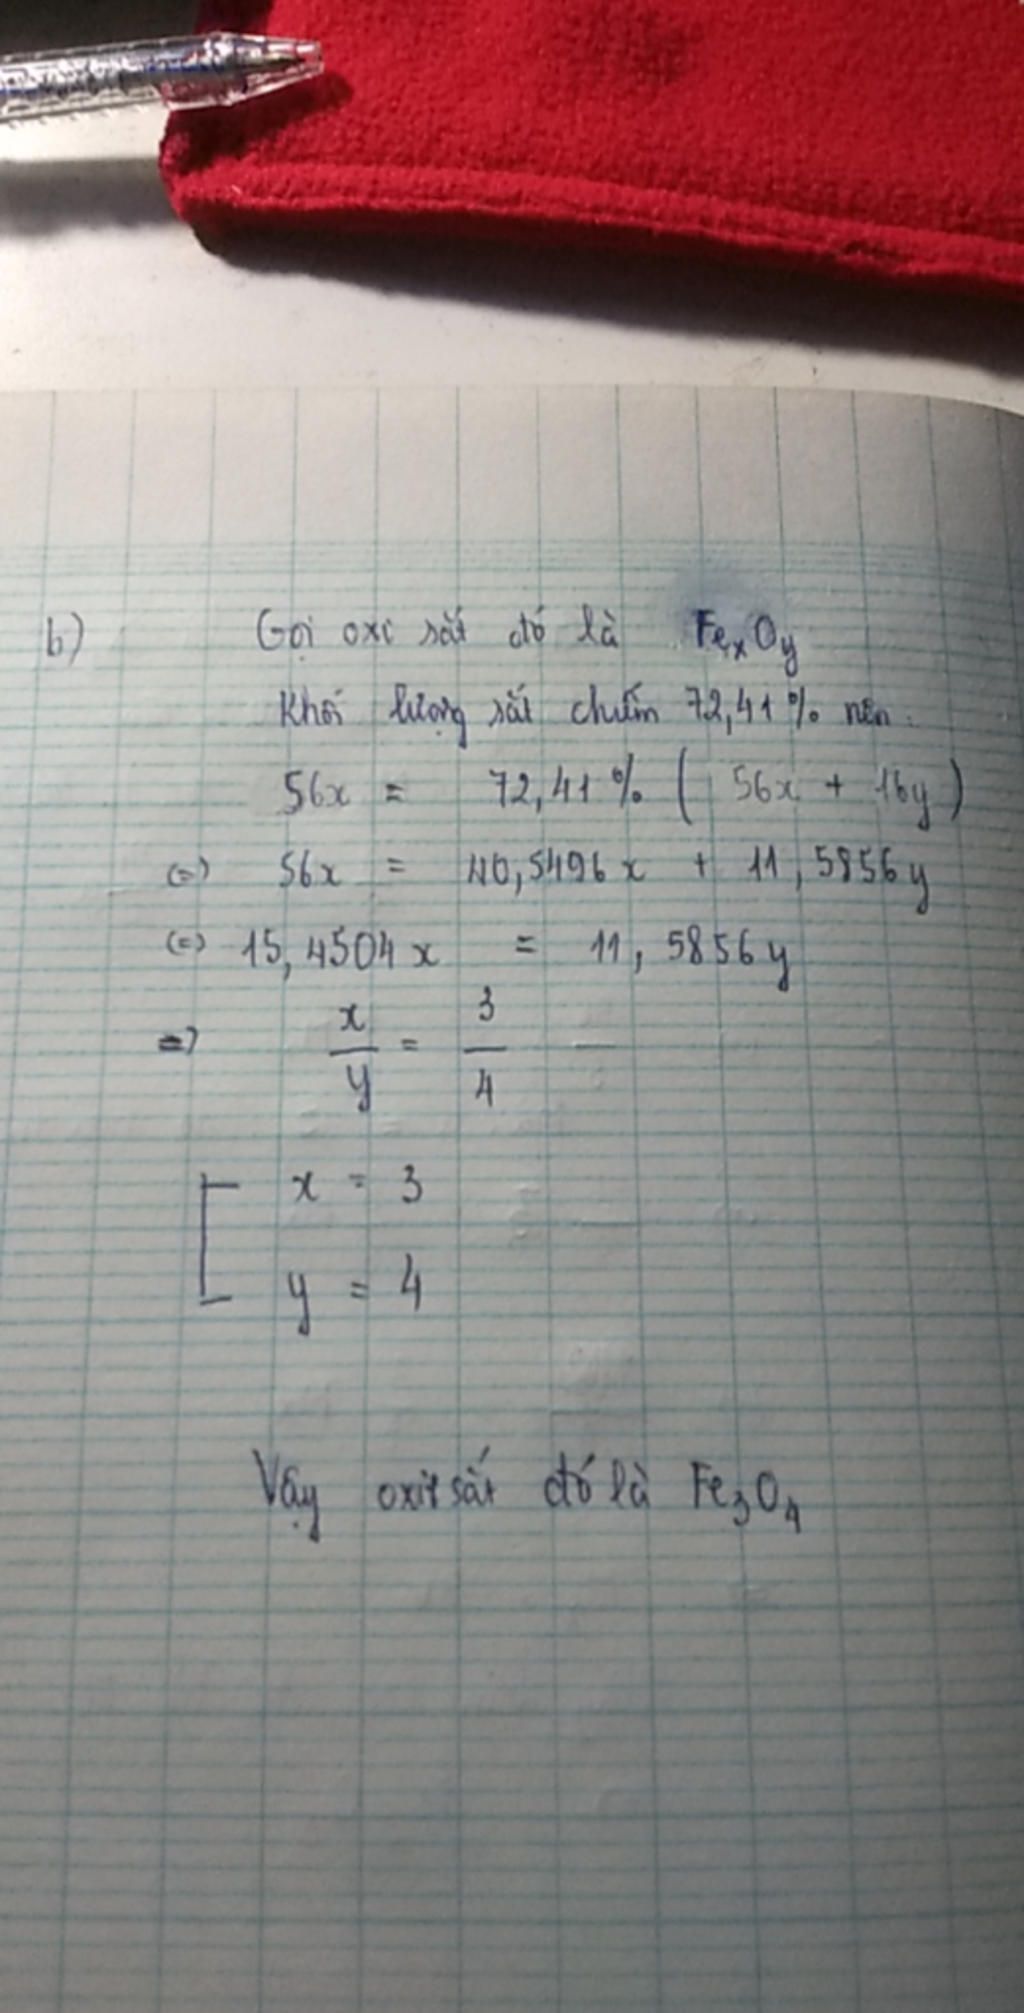 b) Gọi oxi sắt đó là FexOy
Khối lượng sắt chiếm 72,41% nên:
56x = 72,41% ( 56x + 16y )
(=) 56x = 40,5496x + 11,5856y
(=) 15,4504x = 11,5856y
=) x/y = 3/4
[ x = 3
y = 4
Vậy oxit sắt đó là Fe3O4